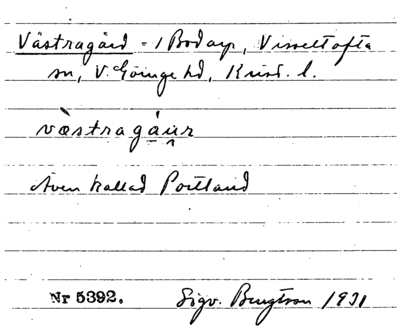 Västragård = 1 Bodarp, Visseltofta
sn, V. Göinge hd, Krist. l.
västragáu̯r
Även kallad Portland
Nr 5392. Sigv. Bengtsson 1931